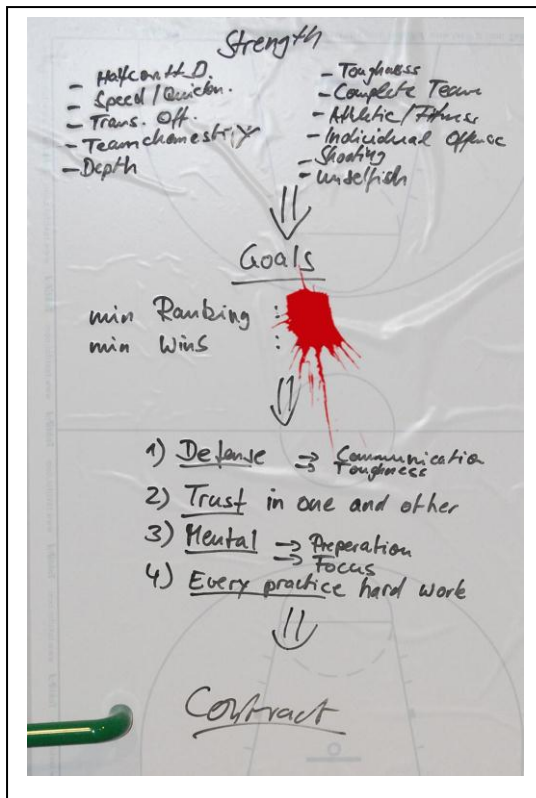 Strength
- Halfcourt D.
- Speed/Quickn.
- Trans. Off.
- Teamchemestrixy
- Depth
- Toughness
- Complete Team
- Athletic/Fitness
- Individual Offense
- Shooting
- unselfish
Goals
min Ranking :
min Wins :
1) Defense → Communication
→ Toughness
2) Trust in one and other
3) Mental → Preperation
→ Focus
4) Every practice hard work
Contract